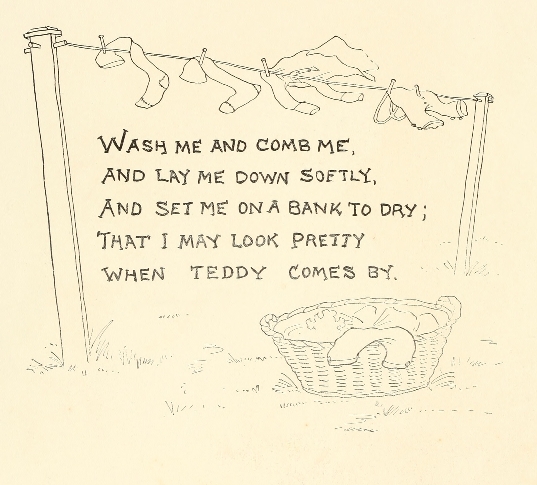 WASH ME AND COMB ME,
AND LAY ME DOWN SOFTLY,
AND SET ME ON A BANK TO DRY;
THAT I MAY LOOK PRETTY
WHEN TEDDY COMES BY.